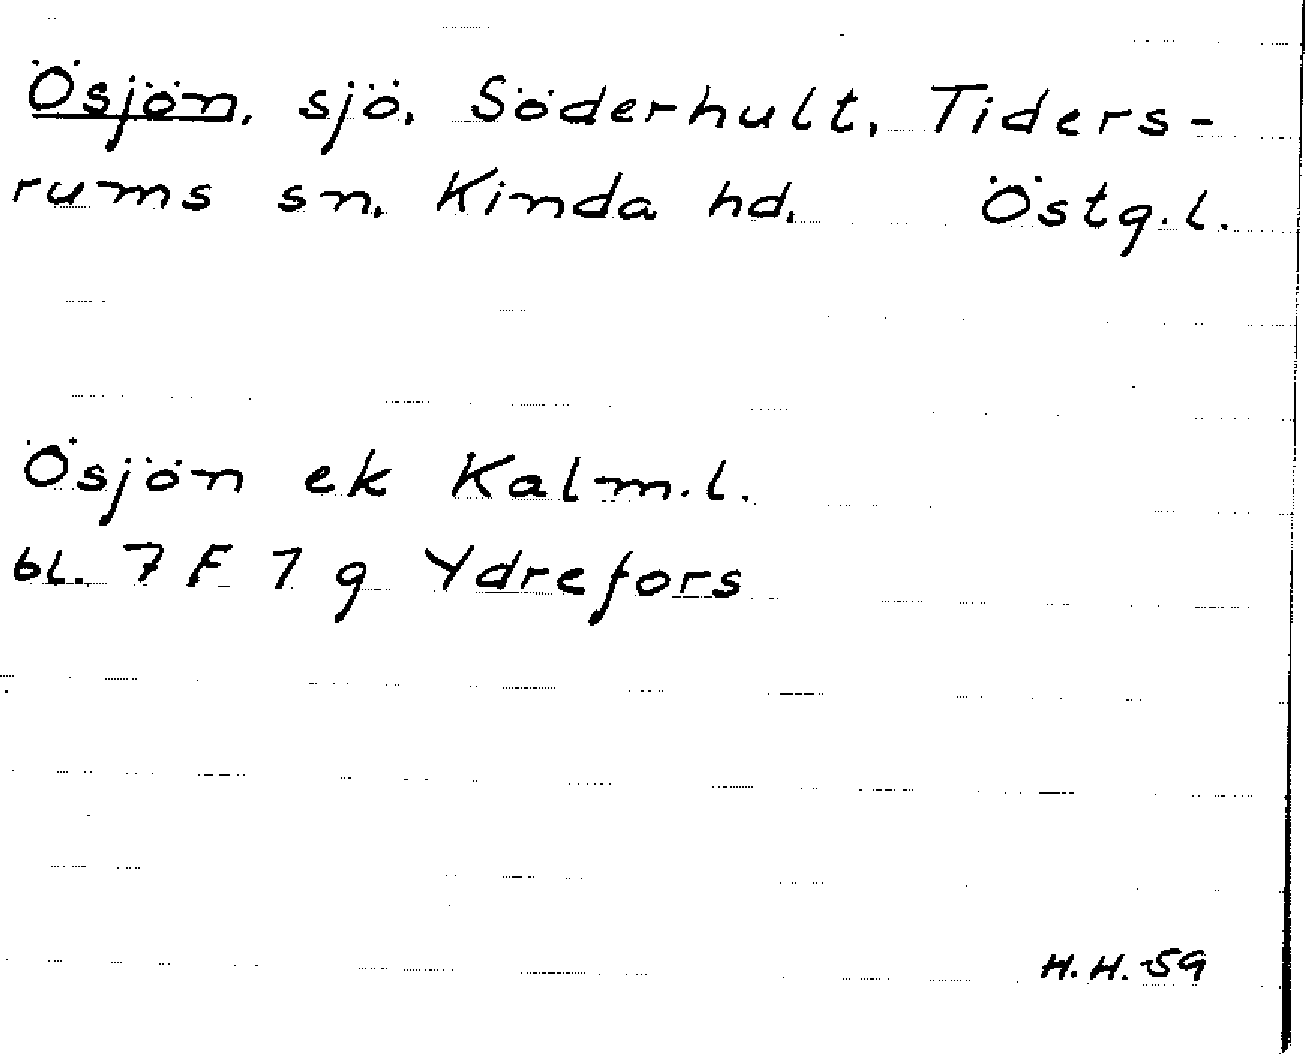 Ösjön, sjö, Söderhult, Tiders-
rums sn, Kinda hd, Östg.l.
Ösjön ek Kalm.l.
bl. 7 F 1 g Ydrefors
H.H.-59